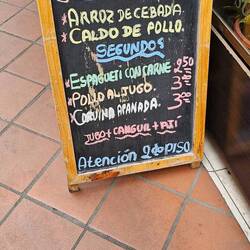 *ARROZ DE CEBADA.
*CALDO DE POLLO.
SEGUNDOS
*ESPAGUETI CON CARNE 2,50
*POLLO AL JUGO.
*CORVINA APANADA.
JUGO + CANGUIL + AJI
Atención 2do PISO